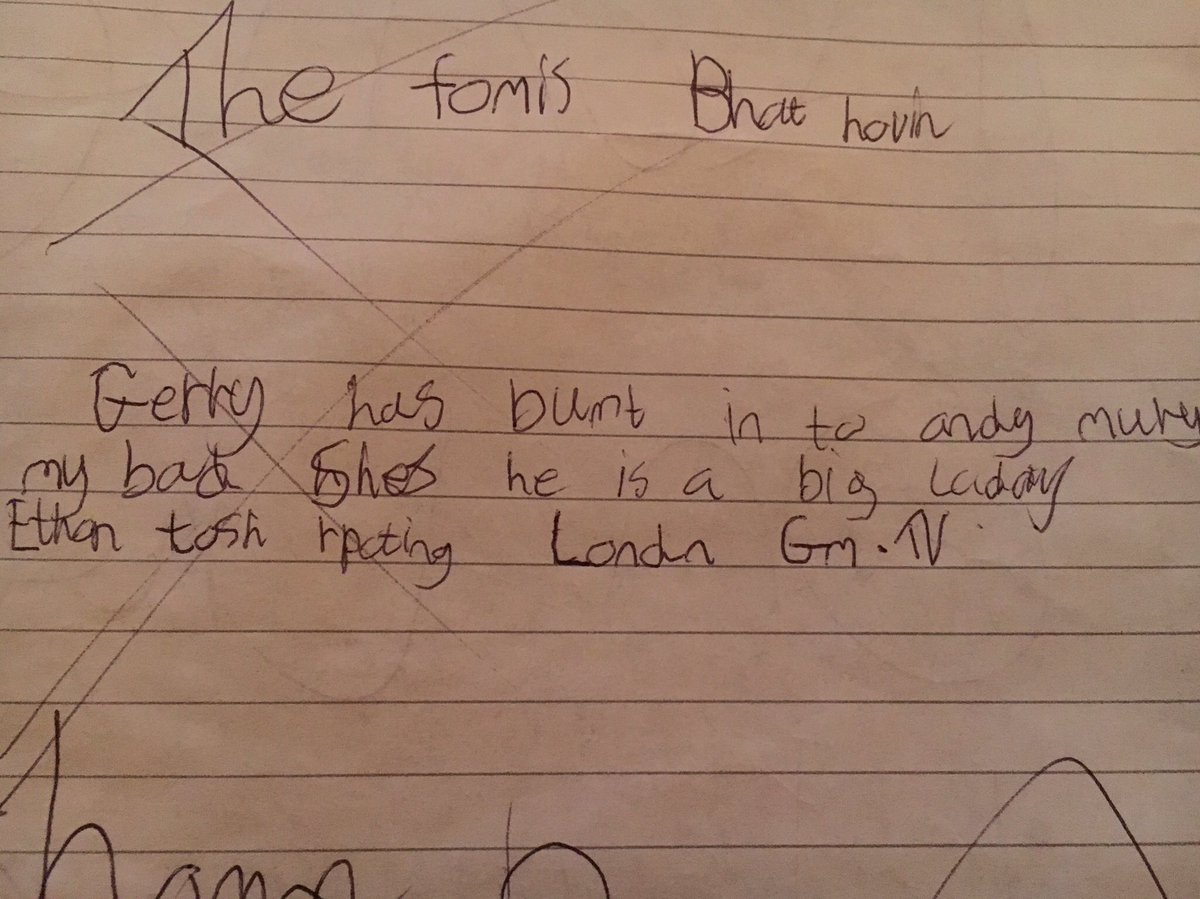 The fomis Bhat hovin
Gerry has bumt in to andy mury
my bad Shes he is a big laday
Ethan tosh rpoting London Gm.TV.